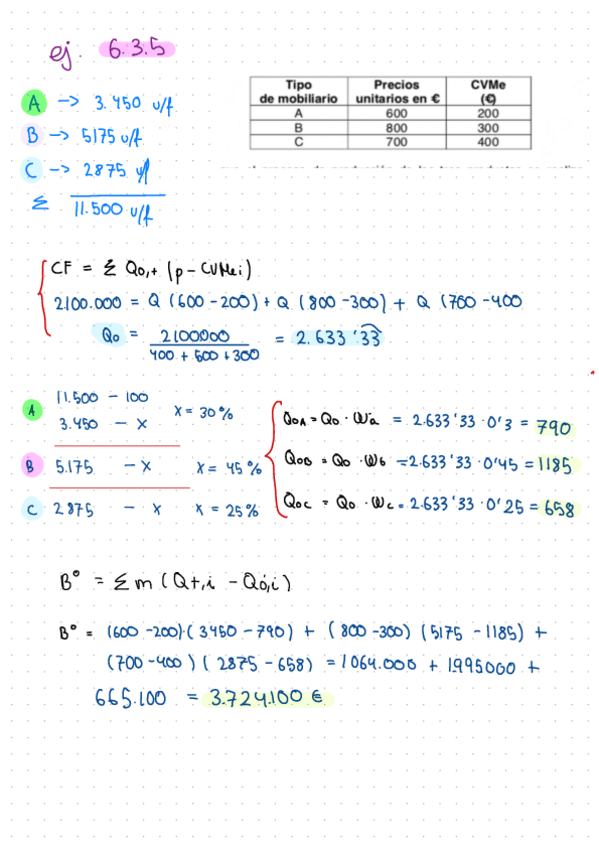 ej. 6.3.5
A -> 3.450 u/f
B -> 5175 u/f
C -> 2875 u/f
Σ 11.500 u/f
Tipo de mobiliario Precios unitarios en € CVMe (€)
A 600 200
B 800 300
C 700 400
CF = Σ Qo,t (p - CVMe i)
2100.000 = Q (600 - 200) + Q (800 - 300) + Q (700 - 400
Qo = 2100000 / 400 + 500 + 300 = 2.633'33
A 11.500 - 100
3.450 - x x = 30%
B 5.175 - x x = 45%
C 2875 - x x = 25%
QoA = Qo · Wa = 2.633'33 · 0'3 = 790
QoB = Qo · Wb = 2.633'33 · 0'45 = 1185
Qoc = Qo · Wc = 2.633'33 · 0'25 = 658
B° = Σ m (Qt,i - Qo,i)
B° = (600 - 200) · (3450 - 790) + (800 - 300) (5175 - 1185) +
(700 - 400) (2875 - 658) = 1064.000 + 1995000 +
665.100 = 3.724.100 €